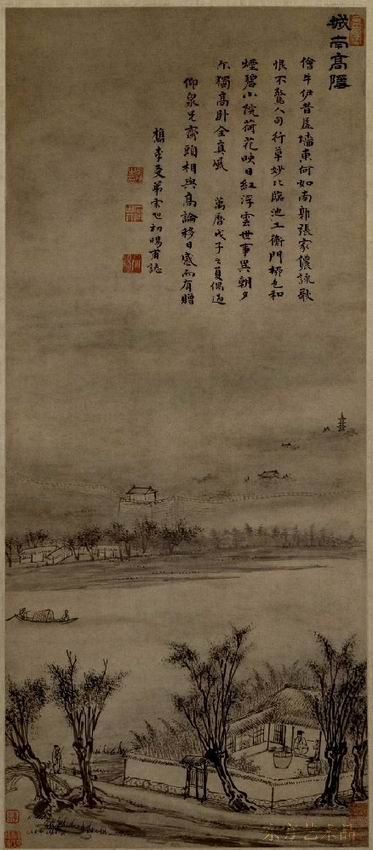 城南高隱
儈牛伊昔居墻東何如南郭張家儂詠歌
恨不驚人句行草妙臨池工衡門柳色和
煙碧小院荷花映日紅浮雲世事異朝夕
尔獨高卧全真風　萬曆戊子之夏偶過
仰泉兄齋頭相與高論移日感而有贈
檇李友弟宋旭初暘甫誌